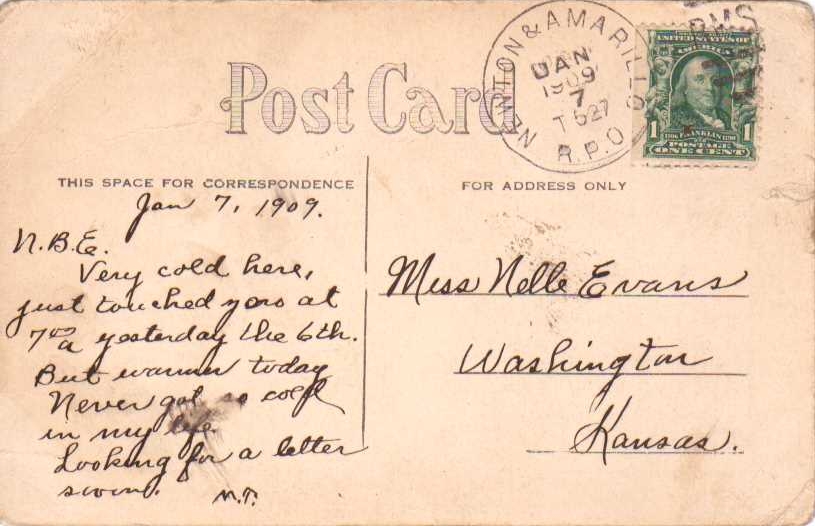 Post Card
NEWTON & AMARILLO
JAN
1909
7
T 527
R.P.O.
RMS
UNITED STATES OF
AMERICA
1 FRANKLIN 1
POSTAGE
ONE CENT
THIS SPACE FOR CORRESPONDENCE
FOR ADDRESS ONLY
Jan 7, 1909.
N.B.E.
Very cold here,
just touched zero at
7 00 a yesterday the 6th.
But warmer today
Never got so cold
in my life.
Looking for a letter
soon.
M.T.
Miss Nelle Evans
Washington
Kansas.